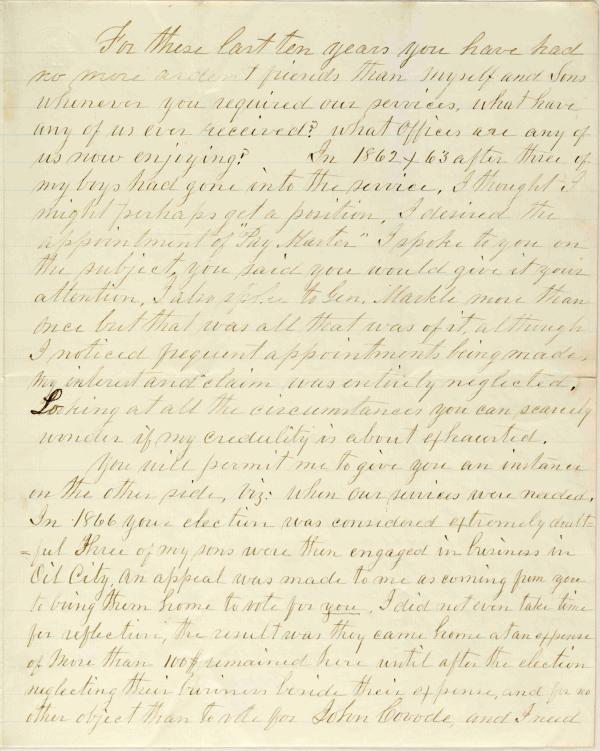 For these last ten years you have had
no more ardent friends than myself and Sons
whenever you required our services, what have
any of us ever received? what Offices are any of
us now enjoying? In 1862 & 63 after three of
my boys had gone into the service, I thought I
might perhaps get a position, I desired the
appointment of "Pay Master" I spoke to you on
the subject, you said you would give it your
attention, I also spoke to Gen. Markle more than
once but that was all that was of it, although
I noticed frequent appointments being made,
my interest and claim was entirely neglected.
Looking at all the circumstances you can scarcely
wonder if my credulity is about exhausted.
You will permit me to give you an instance
on the other side, viz: when our services were needed.
In 1866 your election was considered extremely doubt=
=ful Three of my sons were then engaged in business in
Oil City, An appeal was made to me as coming from you
to bring them home to vote for you, I did not even take time
for reflection, the result was they came home at an expense
of More than 100$ remained here until after the election
neglecting their business beside their expense, and for no
other object than to vote for John Covode, and I need